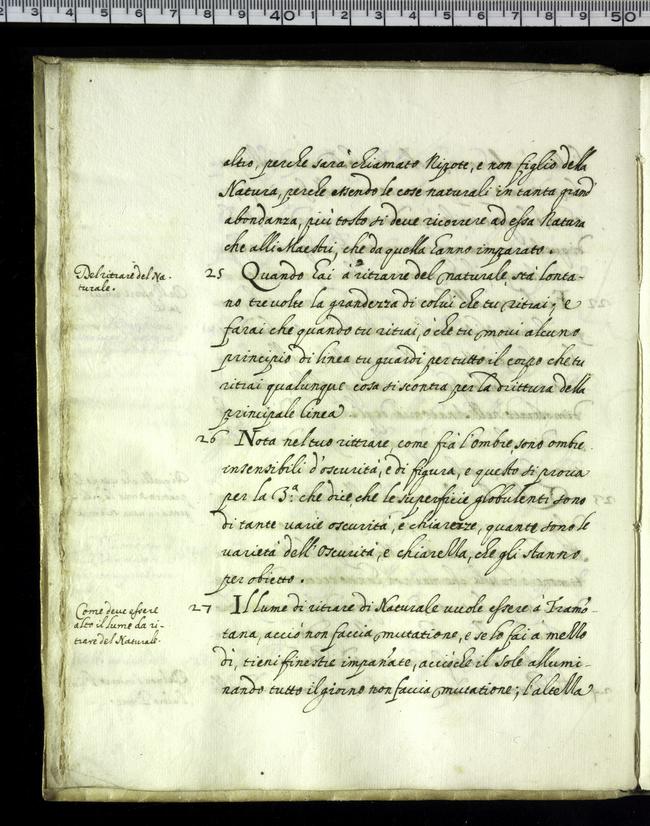 altro, perche sarà chiamato Nipote, e non figlio della
Natura, perche essendo le cose naturali in tanta grand'
abondanza, più tosto si deve ricorrere ad essa Natura
che alli Maestri, che da quella hanno imparato.
Del ritrare del Na-
turale.
25 Quando hai à ritrarre del naturale, stà lonta-
no tre volte la grandezza di colui che tu ritrai; e
farai che quando tu ritrai, ò che tu movi alcuno
principio di linea tu guardi per tutto il corpo che tu
ritrai qualunque cosa si scontra per la drittura della
principale linea
26 Nota nel tuo rittrare, come frà l'ombre, sono ombre
insensibili d'oscurità, e di figura, e questo si prova
per la 3.ª che dice, che le superficie globulenti sono
di tante varie oscurità, e chiarezze, quante sono le
varietà dell'oscurità, e chiarezza, che gli stanno
per obietto.
Come deve essere
alto il lume da ri-
trare del Naturale.
27 Il lume di ritrare di Naturale vuole essere à Tramo-
tana, acciò non faccia mutatione, e se lo fai a mezzo
dì, tieni finestre impan'ate, acciòche il Sole allumi-
nando tutto il giorno non faccia mutatione; l'altezza
40
50
1 2 3 4 6 7 8 9
1 2 3 4 6 7 8 9